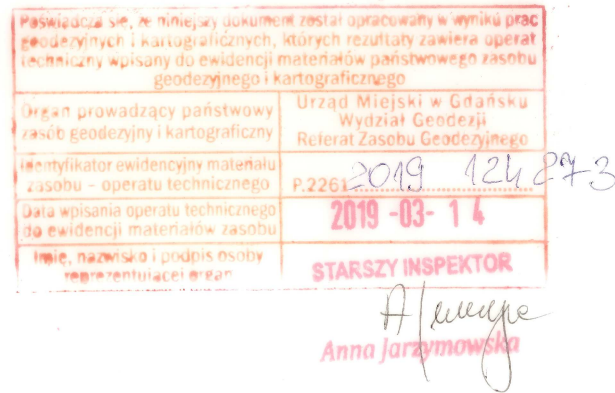 Poświadcza się, że niniejszy dokument został opracowany w wyniku prac
geodezyjnych i kartograficznych, których rezultaty zawiera operat
techniczny wpisany do ewidencji materiałów państwowego zasobu
geodezyjnego i kartograficznego
Organ prowadzący państwowy
zasób geodezyjny i kartograficzny
Urząd Miejski w Gdańsku
Wydział Geodezji
Referat Zasobu Geodezyjnego
Identyfikator ewidencyjny materiału
zasobu - operatu technicznego
P.2261.2019 124 273
Data wpisania operatu technicznego
do ewidencji materiałów zasobu
2019 -03- 14
Imię, nazwisko i podpis osoby
reprezentującej organ
STARSZY INSPEKTOR
Anna Jarzymowska